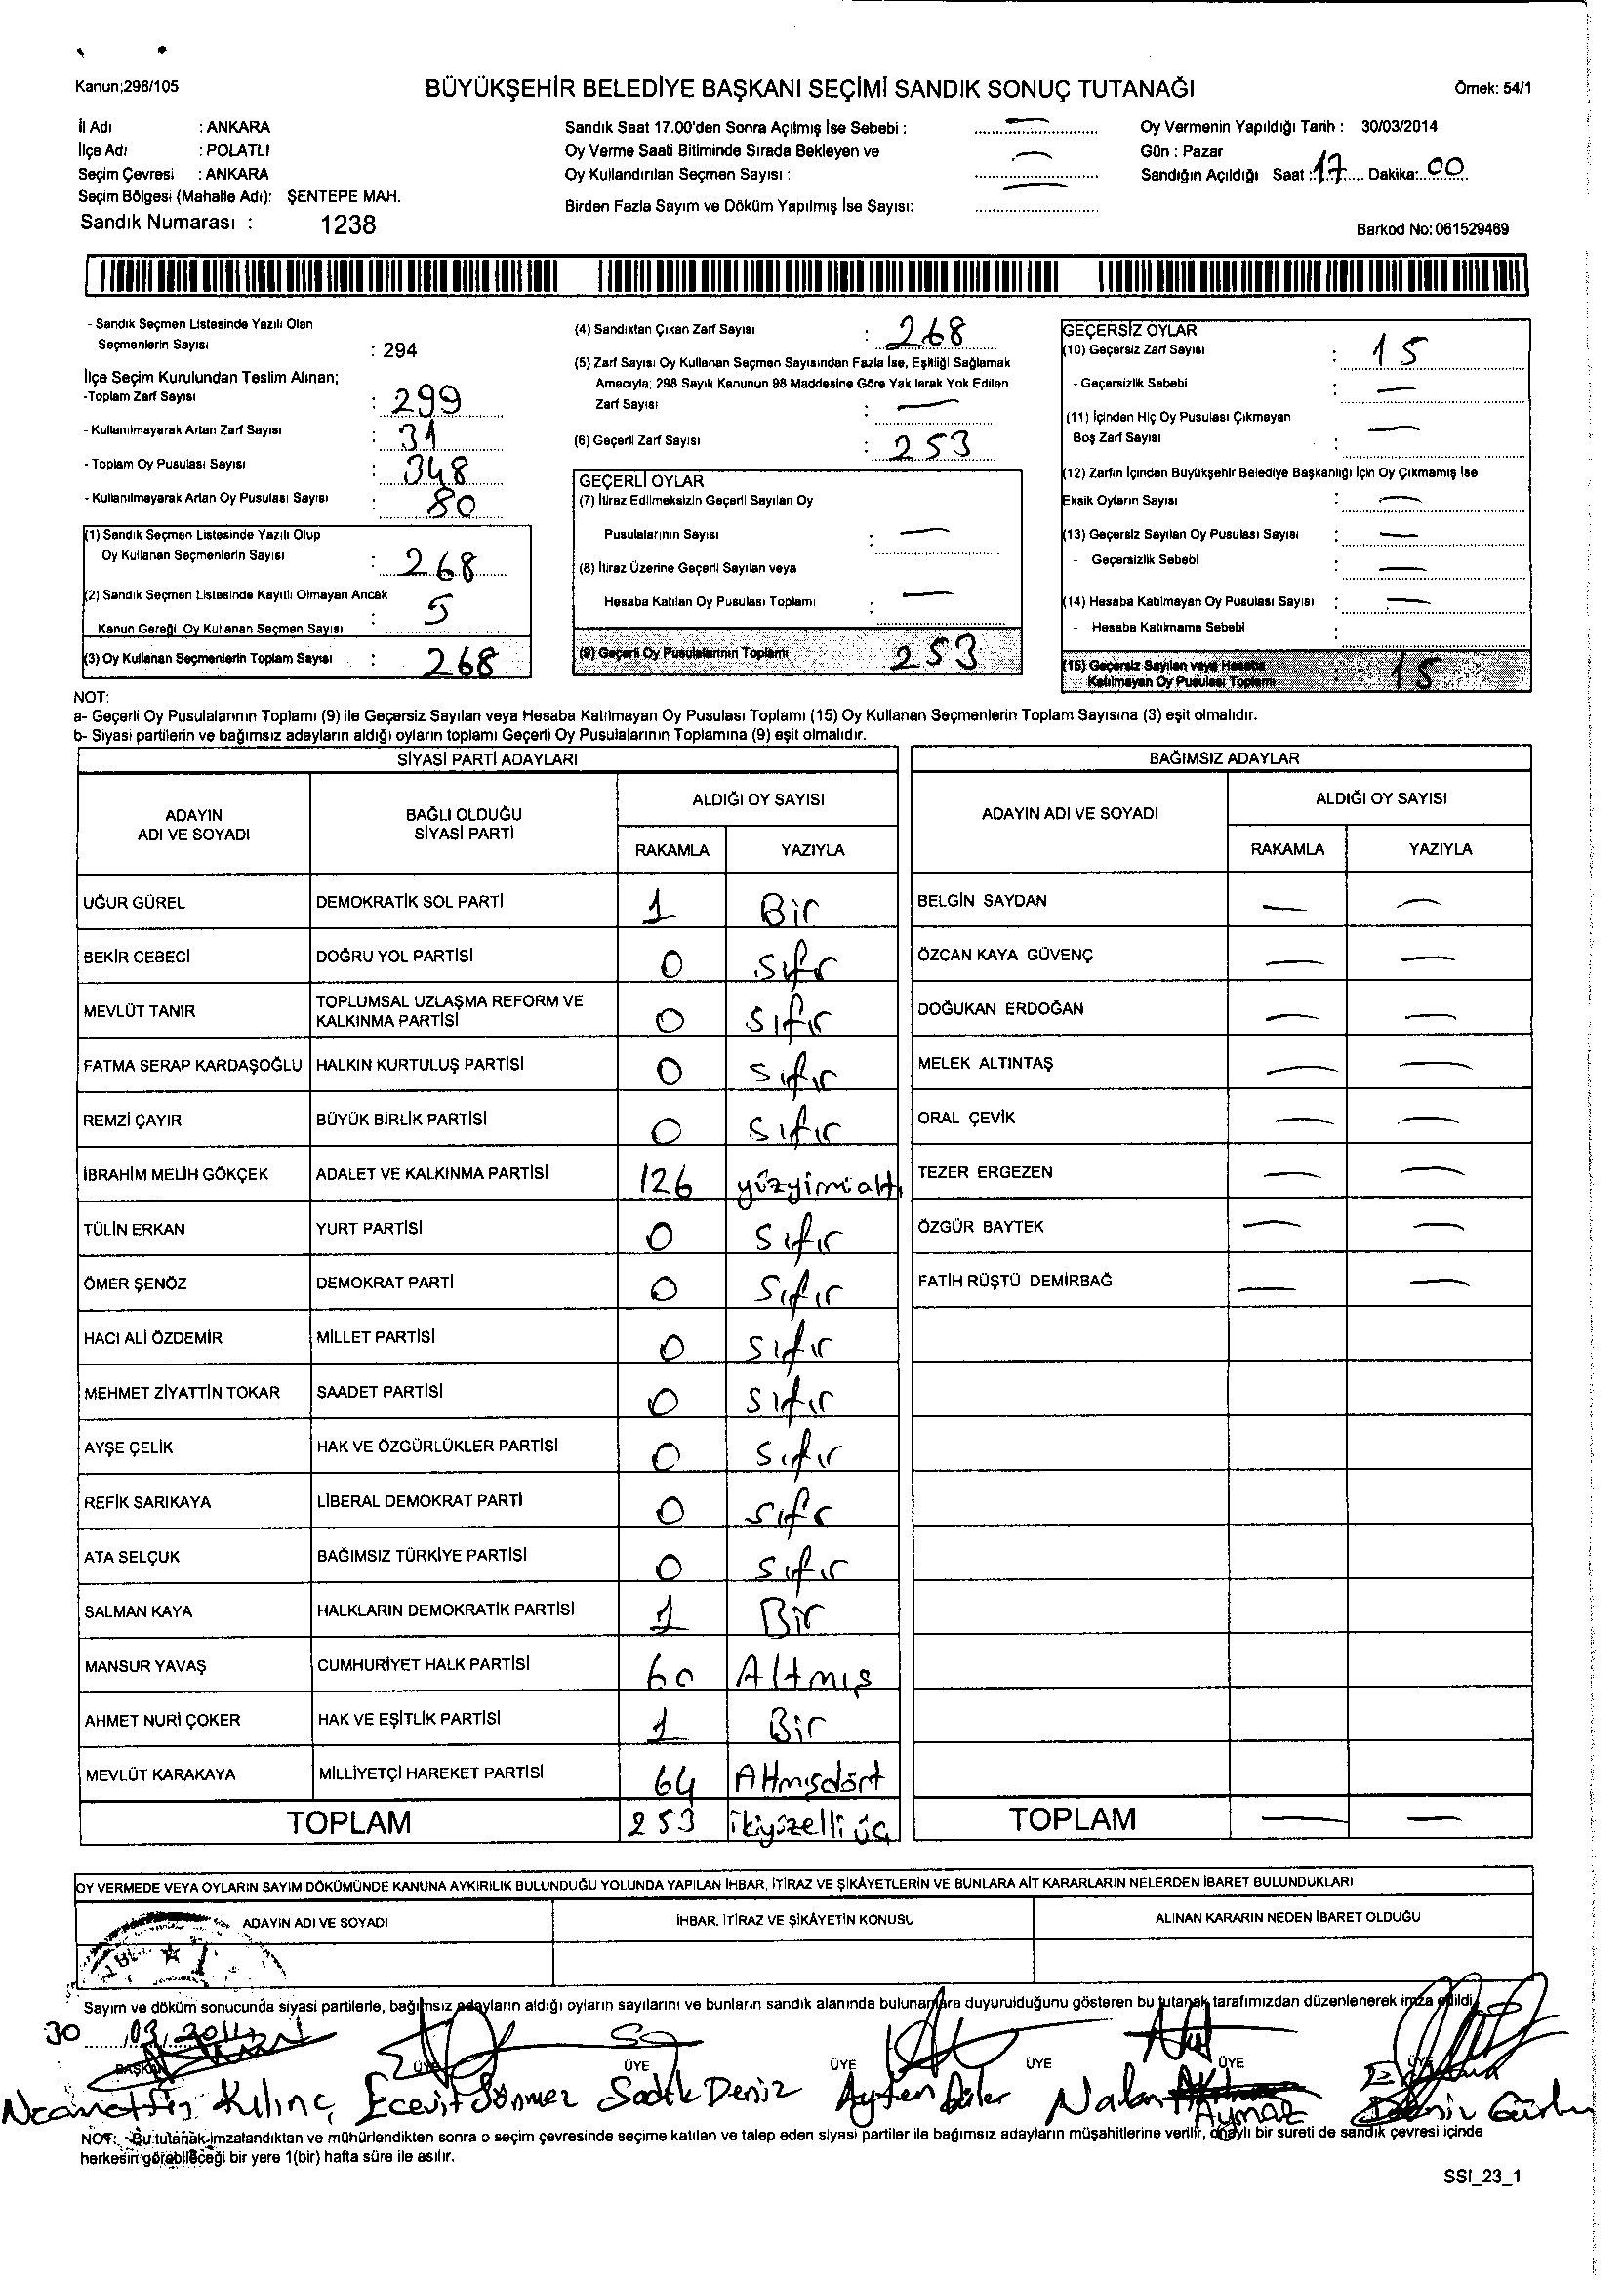 Kanun;298/105
BÜYÜKŞEHİR BELEDİYE BAŞKANI SEÇİMİ SANDIK SONUÇ TUTANAĞI
Örnek: 54/1
İl Adı : ANKARA
İlçe Adı : POLATLI
Seçim Çevresi : ANKARA
Seçim Bölgesi (Mahalle Adı): ŞENTEPE MAH.
Sandık Numarası : 1238
Sandık Saat 17.00'den Sonra Açılmış İse Sebebi : —
Oy Verme Saati Bitiminde Sırada Bekleyen ve
Oy Kullandırılan Seçmen Sayısı : —
Birden Fazla Sayım ve Döküm Yapılmış İse Sayısı: —
Oy Vermenin Yapıldığı Tarih : 30/03/2014
Gün : Pazar
Sandığın Açıldığı Saat : 17 Dakika: 00
Barkod No: 061529469
- Sandık Seçmen Listesinde Yazılı Olan
Seçmenlerin Sayısı : 294
İlçe Seçim Kurulundan Teslim Alınan;
-Toplam Zarf Sayısı : 299
- Kullanılmayarak Artan Zarf Sayısı : 31
- Toplam Oy Pusulası Sayısı : 348
- Kullanılmayarak Artan Oy Pusulası Sayısı : 80
(1) Sandık Seçmen Listesinde Yazılı Olup
Oy Kullanan Seçmenlerin Sayısı : 268
(2) Sandık Seçmen Listesinde Kayıtlı Olmayan Ancak
Kanun Gereği Oy Kullanan Seçmen Sayısı : 5
(3) Oy Kullanan Seçmenlerin Toplam Sayısı : 268
(4) Sandıktan Çıkan Zarf Sayısı : 268
(5) Zarf Sayısı Oy Kullanan Seçmen Sayısından Fazla İse, Eşitliği Sağlamak
Amacıyla; 298 Sayılı Kanunun 98.Maddesine Göre Yakılarak Yok Edilen
Zarf Sayısı : —
(6) Geçerli Zarf Sayısı : 253
GEÇERLİ OYLAR
(7) İtiraz Edilmeksizin Geçerli Sayılan Oy
Pusulalarının Sayısı : —
(8) İtiraz Üzerine Geçerli Sayılan veya
Hesaba Katılan Oy Pusulası Toplamı : —
(9) Geçerli Oy Pusulalarının Toplamı 253
GEÇERSİZ OYLAR
(10) Geçersiz Zarf Sayısı : 15
- Geçersizlik Sebebi : —
(11) İçinden Hiç Oy Pusulası Çıkmayan
Boş Zarf Sayısı : —
(12) Zarfın İçinden Büyükşehir Belediye Başkanlığı İçin Oy Çıkmamış İse
Eksik Oyların Sayısı : —
(13) Geçersiz Sayılan Oy Pusulası Sayısı : —
- Geçersizlik Sebebi : —
(14) Hesaba Katılmayan Oy Pusulası Sayısı : —
- Hesaba Katılmama Sebebi :
(15) Geçersiz Sayılan veya Hesaba
Katılmayan Oy Pusulası Toplamı : 15
NOT:
a- Geçerli Oy Pusulalarının Toplamı (9) ile Geçersiz Sayılan veya Hesaba Katılmayan Oy Pusulası Toplamı (15) Oy Kullanan Seçmenlerin Toplam Sayısına (3) eşit olmalıdır.
b- Siyasi partilerin ve bağımsız adayların aldığı oyların toplamı Geçerli Oy Pusulalarının Toplamına (9) eşit olmalıdır.
SİYASİ PARTİ ADAYLARI
ADAYIN ADI VE SOYADI BAĞLI OLDUĞU SİYASİ PARTİ ALDIĞI OY SAYISI
RAKAMLA YAZIYLA
UĞUR GÜREL DEMOKRATİK SOL PARTİ 1 Bir
BEKİR CEBECİ DOĞRU YOL PARTİSİ 0 Sıfır
MEVLÜT TANIR TOPLUMSAL UZLAŞMA REFORM VE KALKINMA PARTİSİ 0 Sıfır
FATMA SERAP KARDAŞOĞLU HALKIN KURTULUŞ PARTİSİ 0 Sıfır
REMZİ ÇAYIR BÜYÜK BİRLİK PARTİSİ 0 Sıfır
İBRAHİM MELİH GÖKÇEK ADALET VE KALKINMA PARTİSİ 126 yüzyirmialtı
TÜLİN ERKAN YURT PARTİSİ 0 Sıfır
ÖMER ŞENÖZ DEMOKRAT PARTİ 0 Sıfır
HACI ALİ ÖZDEMİR MİLLET PARTİSİ 0 Sıfır
MEHMET ZİYATTİN TOKAR SAADET PARTİSİ 0 Sıfır
AYŞE ÇELİK HAK VE ÖZGÜRLÜKLER PARTİSİ 0 Sıfır
REFİK SARIKAYA LİBERAL DEMOKRAT PARTİ 0 Sıfır
ATA SELÇUK BAĞIMSIZ TÜRKİYE PARTİSİ 0 Sıfır
SALMAN KAYA HALKLARIN DEMOKRATİK PARTİSİ 1 Bir
MANSUR YAVAŞ CUMHURİYET HALK PARTİSİ 60 Altmış
AHMET NURİ ÇOKER HAK VE EŞİTLİK PARTİSİ 1 Bir
MEVLÜT KARAKAYA MİLLİYETÇİ HAREKET PARTİSİ 64 Altmışdört
TOPLAM 253 ikiyüzelli üç
BAĞIMSIZ ADAYLAR
ADAYIN ADI VE SOYADI ALDIĞI OY SAYISI
RAKAMLA YAZIYLA
BELGİN SAYDAN — —
ÖZCAN KAYA GÜVENÇ — —
DOĞUKAN ERDOĞAN — —
MELEK ALTINTAŞ — —
ORAL ÇEVİK — —
TEZER ERGEZEN — —
ÖZGÜR BAYTEK — —
FATİH RÜŞTÜ DEMİRBAĞ — —
TOPLAM — —
OY VERMEDE VEYA OYLARIN SAYIM DÖKÜMÜNDE KANUNA AYKIRILIK BULUNDUĞU YOLUNDA YAPILAN İHBAR, İTİRAZ VE ŞİKÂYETLERİN VE BUNLARA AİT KARARLARIN NELERDEN İBARET BULUNDUKLARI
ADAYIN ADI VE SOYADI İHBAR, İTİRAZ VE ŞİKÂYETİN KONUSU ALINAN KARARIN NEDEN İBARET OLDUĞU
Sayım ve döküm sonucunda siyasi partilerle, bağımsız adayların aldığı oyların sayılarını ve bunların sandık alanında bulunanlara duyurulduğunu gösteren bu tutanak tarafımızdan düzenlenerek imza edildi.
30 .03.2014
BAŞKAN ÜYE ÜYE ÜYE ÜYE ÜYE
Necmettin Kılınç Ecevit Sönmez Sadık Deniz Ayten Güler Nalan Aymaz
NOT: Bu tutanak imzalandıktan ve mühürlendikten sonra o seçim çevresinde seçime katılan ve talep eden siyasi partiler ile bağımsız adayların müşahitlerine verilir, onaylı bir sureti de sandık çevresi içinde
herkesin görebileceği bir yere 1(bir) hafta süre ile asılır.
SSI_23_1